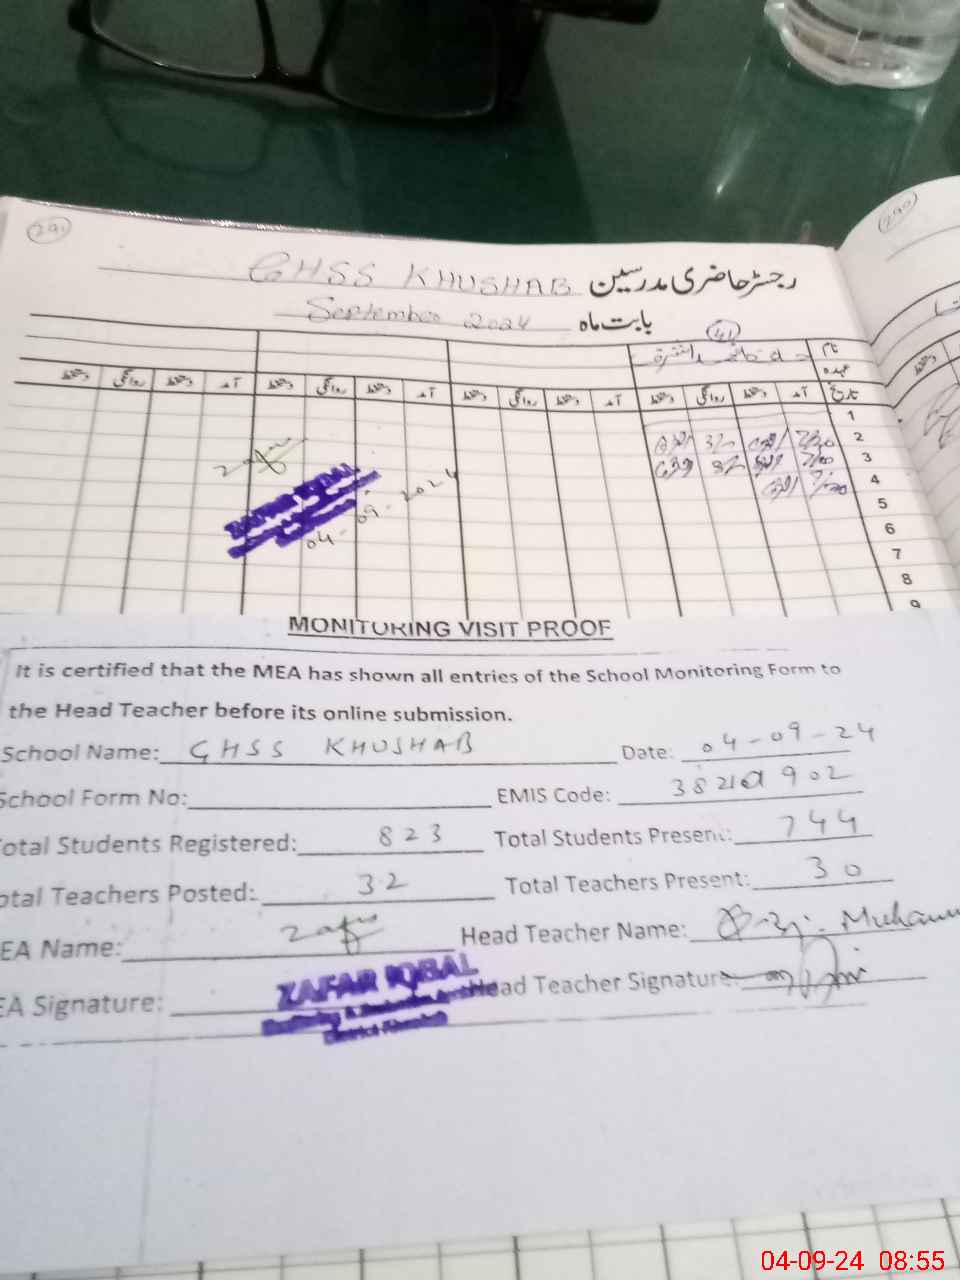 291
290
GHSS KHUSHAB رجسٹر حاضری مدرسین
September 2024 بابت ماہ
41
نام
عہدہ
تاریخ آمد دستخط روانگی دستخط آمد دستخط روانگی دستخط آمد دستخط روانگی دستخط آمد دستخط روانگی دستخط
1
2
3
4
5
6
7
8
9
Zafar
ZAFAR IQBAL
04-09-2024
MONITORING VISIT PROOF
It is certified that the MEA has shown all entries of the School Monitoring Form to
the Head Teacher before its online submission.
School Name: GHSS KHUSHAB Date: 04-09-24
School Form No: EMIS Code:
otal Students Registered: 823 Total Students Present: 744
otal Teachers Posted: 32 Total Teachers Present: 30
EA Name: Zafar Head Teacher Name: Muhamm
EA Signature: ZAFAR IQBAL Head Teacher Signature:
Monitoring & Evaluation Assistant
District Khushab
04-09-24 08:55